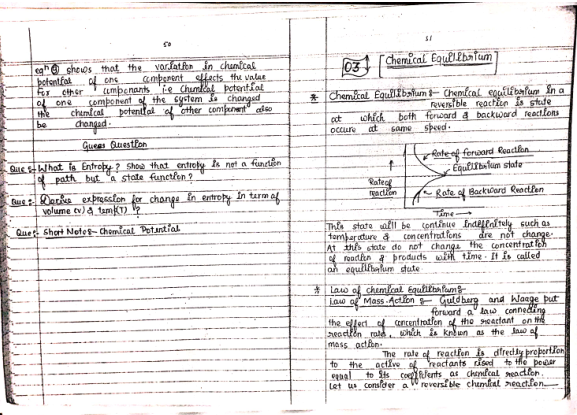 50
eqn ④ shows that the variation in chemical
potential of one component effects the value
For other componants i.e chumical potential
of one component of the system is changed
the chemical potential of other component also
be changed.
Guess Question
Que:- What is Entropy? Show that entropy is not a function
of path but a state function?
Que:- Derive expression for change in entropy in term of
volume (v) & temp(T)?
Que:- Short Notes- Chemical Potential
51
03 [Chemical Equilibrium]
* Chemical Equilibrium:- Chemical equilibrium in a
reversible reaction is state
at which both forward & backward reactions
occure at same speed.
Rate of forward Reaction
Equilibrium state
Rate of
reaction
Rate of Backward Reaction
Time →
This state will be continue indefinitely such as
temperature & concentrations are not change.
At this state do not change the concentration
of reaction & products with time. It is called
an equilibrium state
* Law of chemical Equilibrium:-
Law of Mass-Action:- Guldberg and Waage put
forward a law connecting
the effect of concentration of the reactant on the
reaction rate, which is known as the law of
mass action.
The rate of reaction is directly proportion
to the active of reactants rised to the power
equal to its coefficients as chemical reaction.
Let us consider a reversible chemical reaction